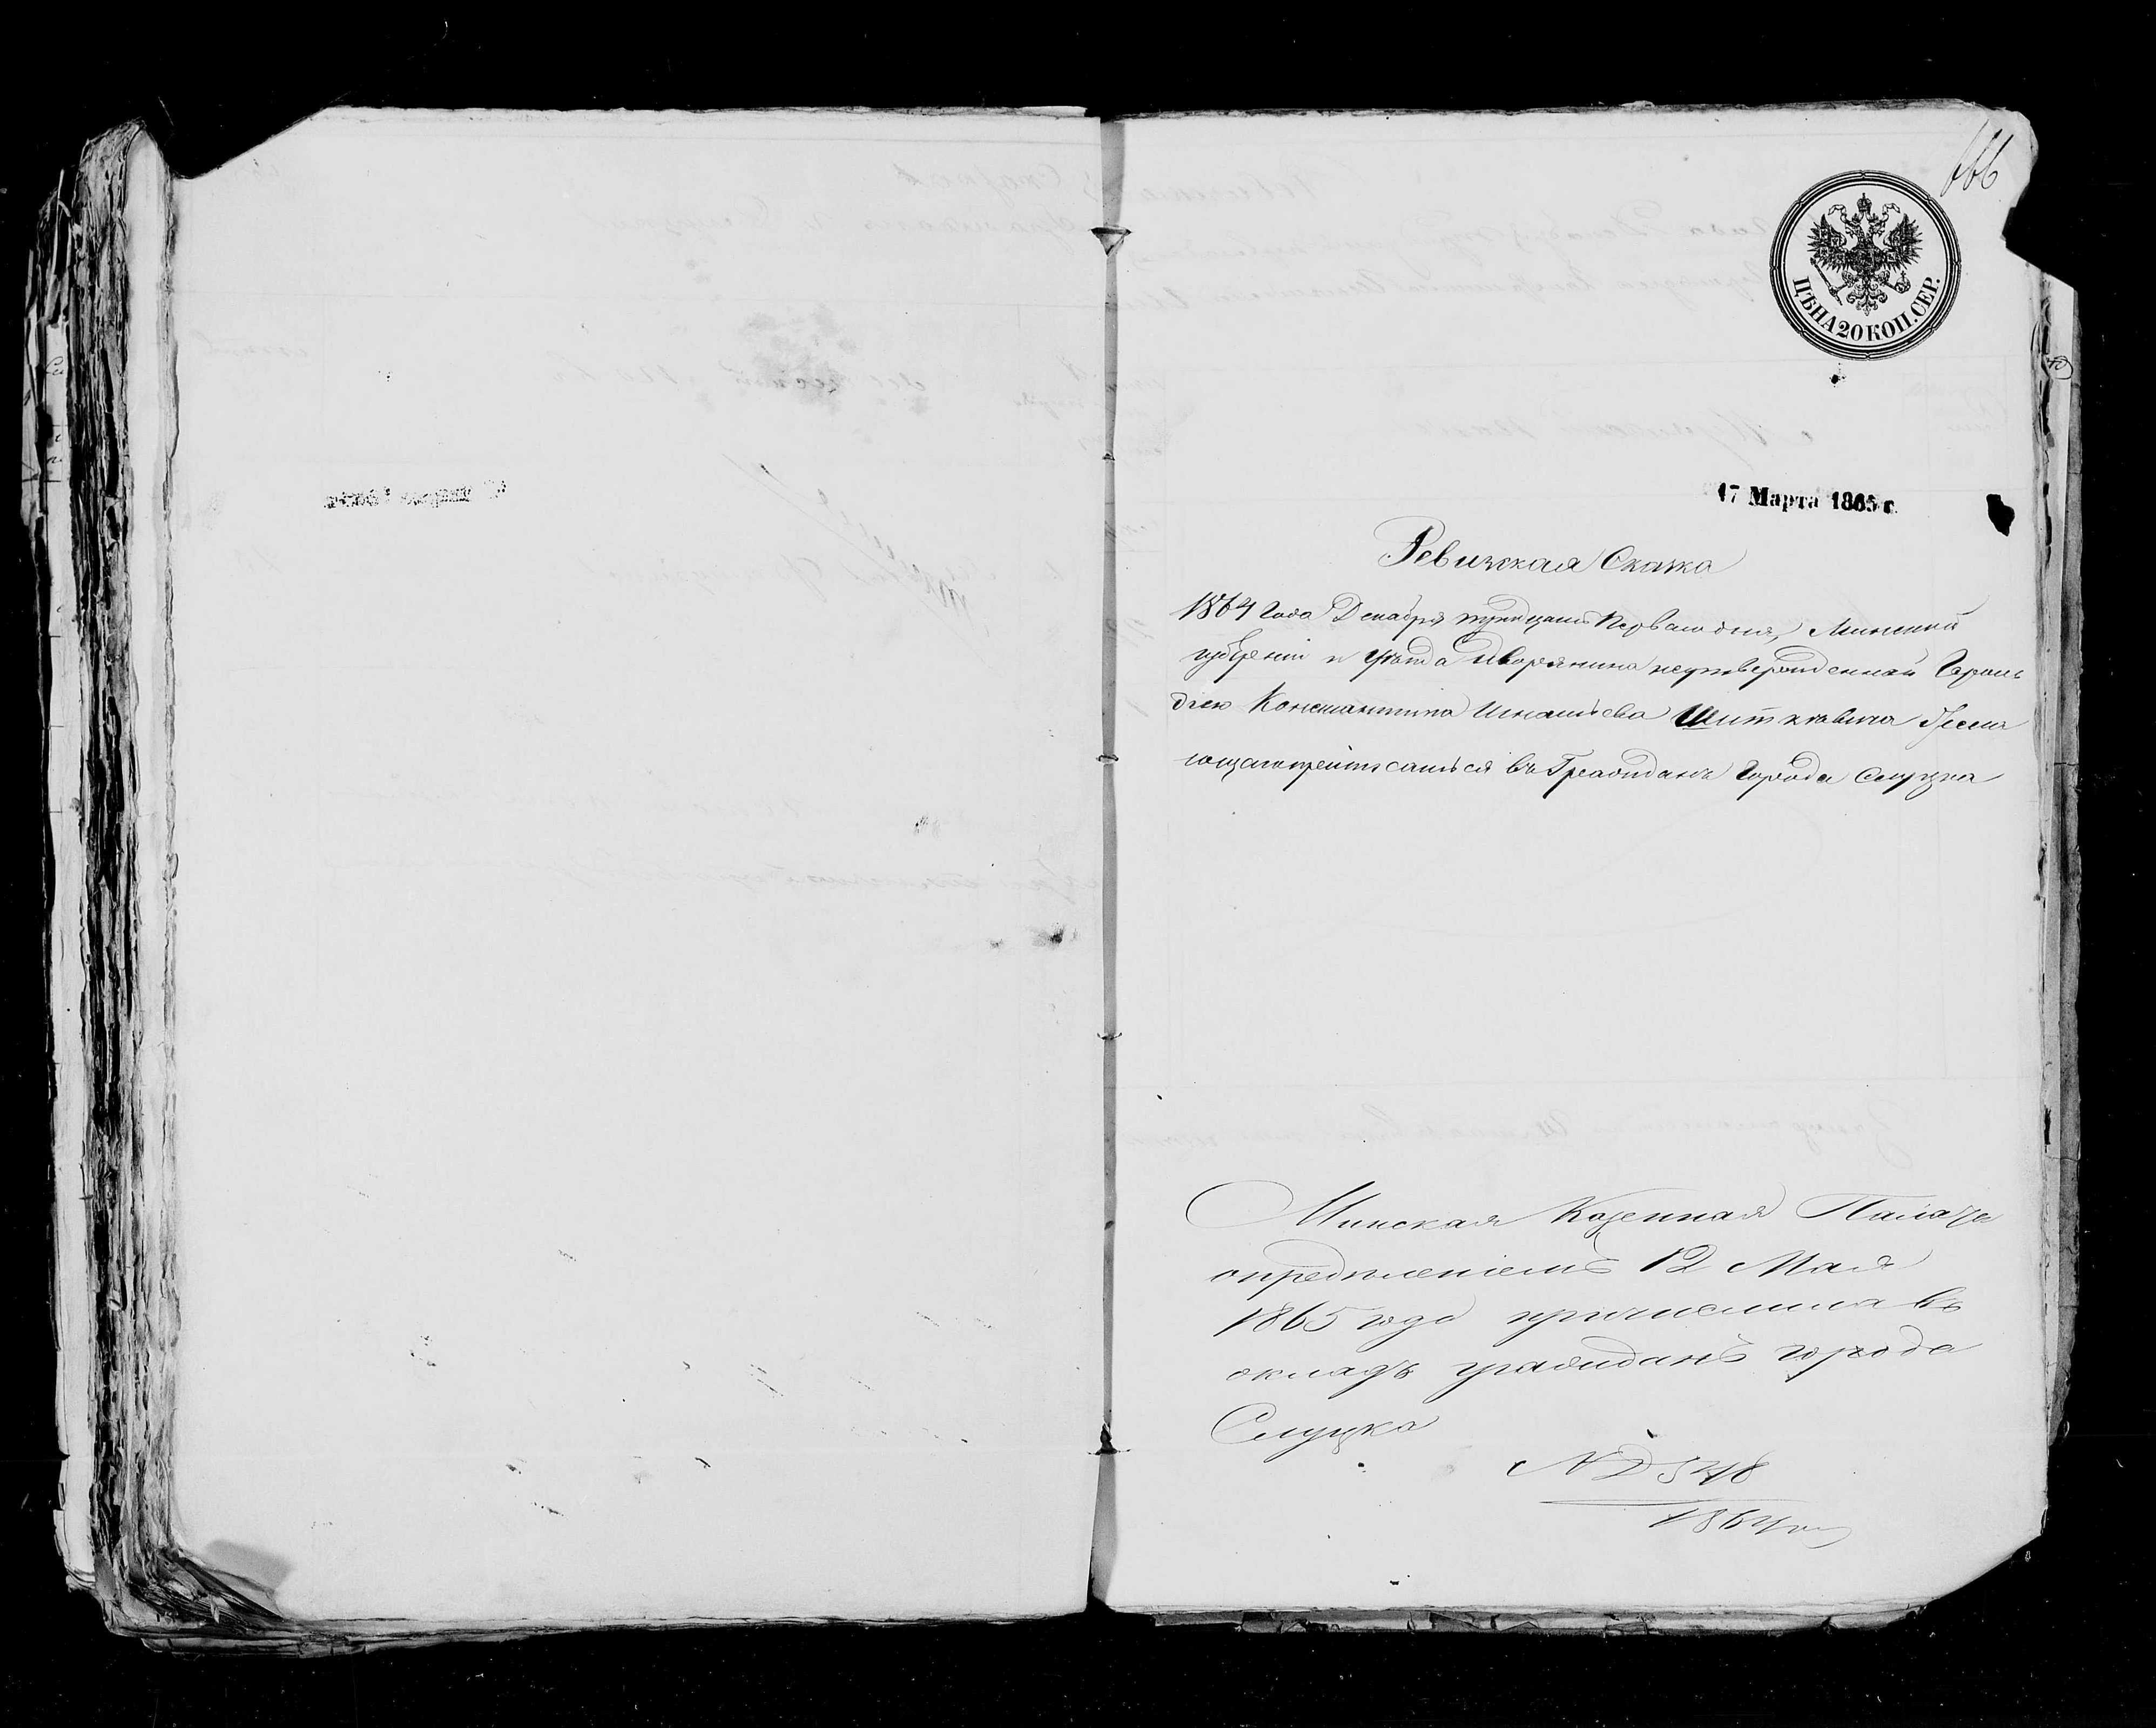 666
ЦѢНА 20 КОП. СЕР.
17 Марта 1865 г.
Ревизская Сказка
1864 года Декабря тридцать Перваго дня, Минской
губерніи и уѣзда дворянина неутвержденнай Героль
діею Константина Игнатьева Шиткевича Жела
ющаго приписаться въ Граждане Города Слуцка
Минская Казенная Палата
опредѣленіемъ 12 Мая
1865 года причислила въ
окладъ гражданъ города
Слуцка
1864